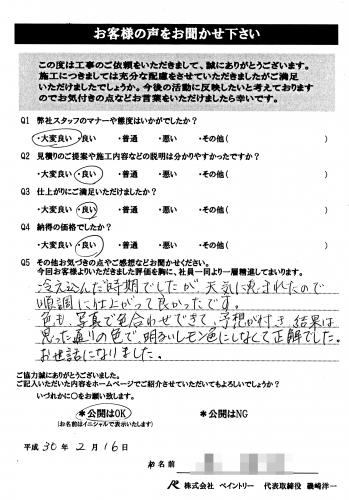 お客様の声をお聞かせ下さい
この度は工事のご依頼をいただきまして、誠にありがとうございます。
施工につきましては充分な配慮をさせていただきましたがご満足
いただけましたでしょうか。今後の活動に反映したいと考えております
のでお気付きの点などお言葉をいただけましたら幸いです。
Q1 弊社スタッフのマナーや態度はいかがでしたか？
・大変良い ・良い ・普通 ・悪い ・その他( )
Q2 見積りのご提案や施工内容などの説明は分かりやすかったですか？
・大変良い ・良い ・普通 ・悪い ・その他( )
Q3 仕上がりにご満足いただけましたか？
・大変良い ・良い ・普通 ・悪い ・その他( )
Q4 納得の価格でしたか？
・大変良い ・良い ・普通 ・悪い ・その他( )
Q5 その他お気づきの点やご感想などお聞かせください。
今回お客様よりいただきました評価を胸に、社員一同より一層精進してまいります。
冷え込んだ時期でしたが、天気に恵まれたので
順調に仕上がって良かったです。
色も、写真で色合わせできて、予想が付き、結果は
思った通りの色で、明るいレモン色にしなくて正解でした。
お世話になりました。
ご協力誠にありがとうございました。
ご記入いただいた内容をホームページでご紹介させていただいてもよろしいでしょうか？
いづれかに○をお願い致します。
＊公開はOK ＊公開はNG
(お名前はイニシャルで表示いたします)
平成 30 年 2 月 16 日
お名前
株式会社 ペイントリー 代表取締役 磯崎洋一